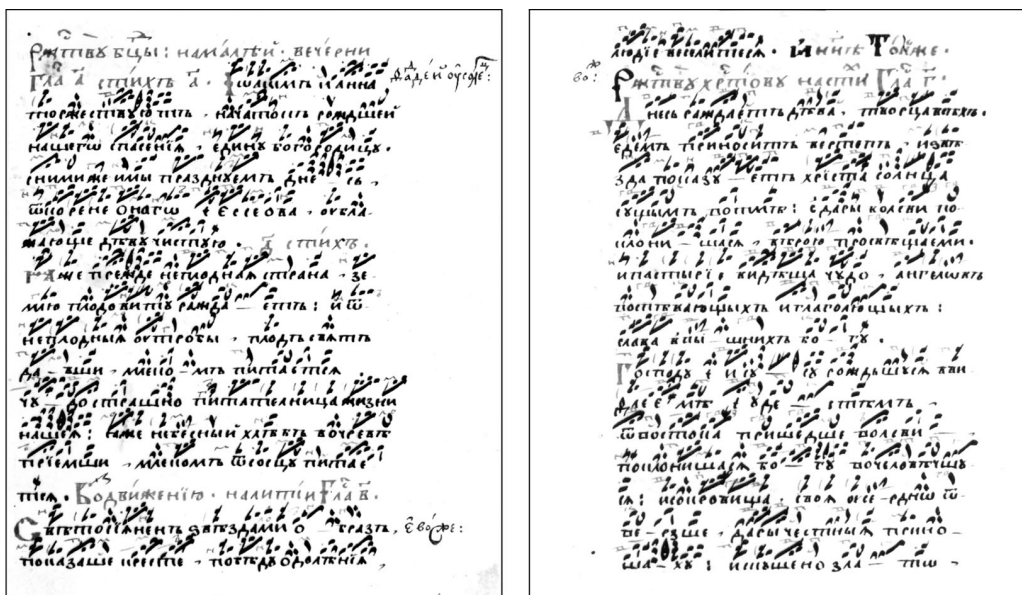 Ржⷭ҇тву бцы : на малѣй · вечерни
Гла а҃ стихъ а҃ · Іѡакимъ и анна
торжествуютъ , начатокъ рождшей
нашегѡ спасенїя , едину богородицу ·
сними же имы празднуемъ дне сь ,
ѿ корене онагѡ і ессеова , убла-
жающе дѣву чистую · а҃ стихъ ·
Ꙗже прежде неплодная страна , зе-
млю плодовиту ражда — етъ : и ѿ
неплодныя оутробы , плодъ святъ
да — вши , млеко — мъ питается
чу — до страшно питателница жизни
нашея : яже небесный хлѣбъ во чревѣ
прїемши , млекомъ ѿ сосцу питае
тся · Воздвиженїю · на литїи Гла в҃ ·
Свѣтосіяненъ звѣздами о — бразъ , во же :
показаше кресте , побѣду одолѣнїя ,
людїе веселитеся · И ниⷩ҇ѣ Тойже ·
во :
Ржⷭ҇тву хрⷭ҇тову на стⷯи Гла г҃ ·
Днесь раждаетъ дѣва , творца всѣхъ ·
едемъ приноситъ вертепъ , и звѣ-
зда показу — етъ христа солнца
сущымъ во тмѣ : с дары волсви по-
клони — шася , вѣрою просвѣщаеми ·
и пастырїе видѣша чудо , ангеловъ
воспѣвающыхъ и глаголющыхъ :
слава в вы — шнихъ бо — гу ·
Господу і ису — су рождьшуся в ви-
флее — мѣ і уде — стѣмъ ,
ѿ востока пришедше волсви —
поклонишася бо — гу вочеловѣчшу
ся : и сокровища , своя усе — рднѡ ѿ-
ве — рзше , дары честныя прино —
ша — ху : искушено зла — то ,